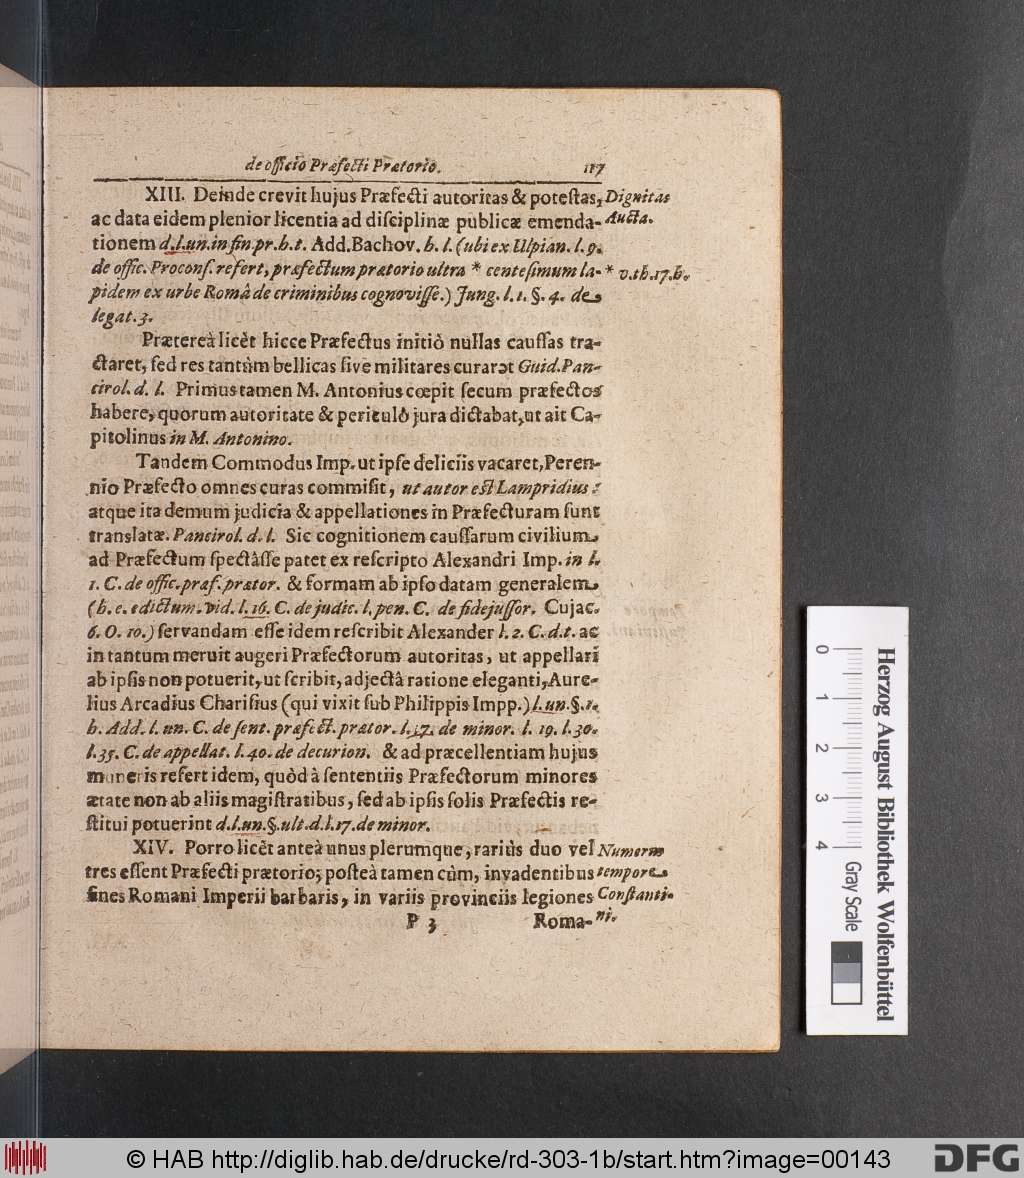 de officio Præfecti Prætorio. 117
XIII. Deinde crevit hujus Præfecti autoritas & poteſtas, Dignitas
ac data eidem plenior licentia ad diſciplinæ publicæ emenda- Aucta.
tionem d.l.un.in fin.pr.h.t. Add. Bachov. h. l. (ubi ex Ulpian. l. 9.
de offic. Proconſ. refert, præfectum prætorio ultra * centeſimum la- * v. th. 17. h.
pidem ex urbe Româ de criminibus cognoviſſe.) Jung. l. 1. §. 4. de
legat. 3.
Prætereà licèt hicce Præfectus initiò nullas cauſſas tra-
ctaret, ſed res tantùm bellicas ſive militares curaret Guid. Pan-
cirol. d. l. Primus tamen M. Antonius cœpit ſecum præfectos
habere, quorum autoritate & periculô jura dictabat, ut ait Ca-
pitolinus in M. Antonino.
Tandem Commodus Imp. ut ipſe deliciis vacaret, Peren-
nio Præfecto omnes curas commiſit, ut autor eſt Lampridius:
atque ita demum judicia & appellationes in Præfecturam ſunt
translatæ. Pancirol. d. l. Sic cognitionem cauſſarum civilium
ad Præfectum ſpectâſſe patet ex reſcripto Alexandri Imp. in l.
1. C. de offic. præf. prætor. & formam ab ipſo datam generalem
(h. e. edictum. vid. l. 16. C. de judic. l. pen. C. de fidejuſſor. Cujac.
6. O. 10.) ſervandam eſſe idem reſcribit Alexander l. 2. C. d. t. ac
in tantum meruit augeri Præfectorum autoritas, ut appellari
ab ipſis non potuerit, ut ſcribit, adjectâ ratione eleganti, Aure-
lius Arcadius Chariſius (qui vixit ſub Philippis Impp.) l. un. §. 1.
h. Add. l. un. C. de ſent. præfect. prætor. l. 17. de minor. l. 19. l. 30.
l. 35. C. de appellat. l. 40. de decurion. & ad præcellentiam hujus
muneris refert idem, quòd à ſententiis Præfectorum minores
ætate non ab aliis magiſtratibus, ſed ab ipſis ſolis Præfectis re-
ſtitui potuerint d. l. un. §. ult. d. l. 17. de minor.
XIV. Porro licèt anteà unus plerumque, rariùs duo vel Numerus
tres eſſent Præfecti prætorio; poſteà tamen cùm, invadentibus tempore
fines Romani Imperii barbaris, in variis provinciis legiones Conſtanti-
P 3 Roma- ni.
0 1 2 3 4
Herzog August Bibliothek Wolfenbüttel
Gray Scale
© HAB http://diglib.hab.de/drucke/rd-303-1b/start.htm?image=00143
DFG